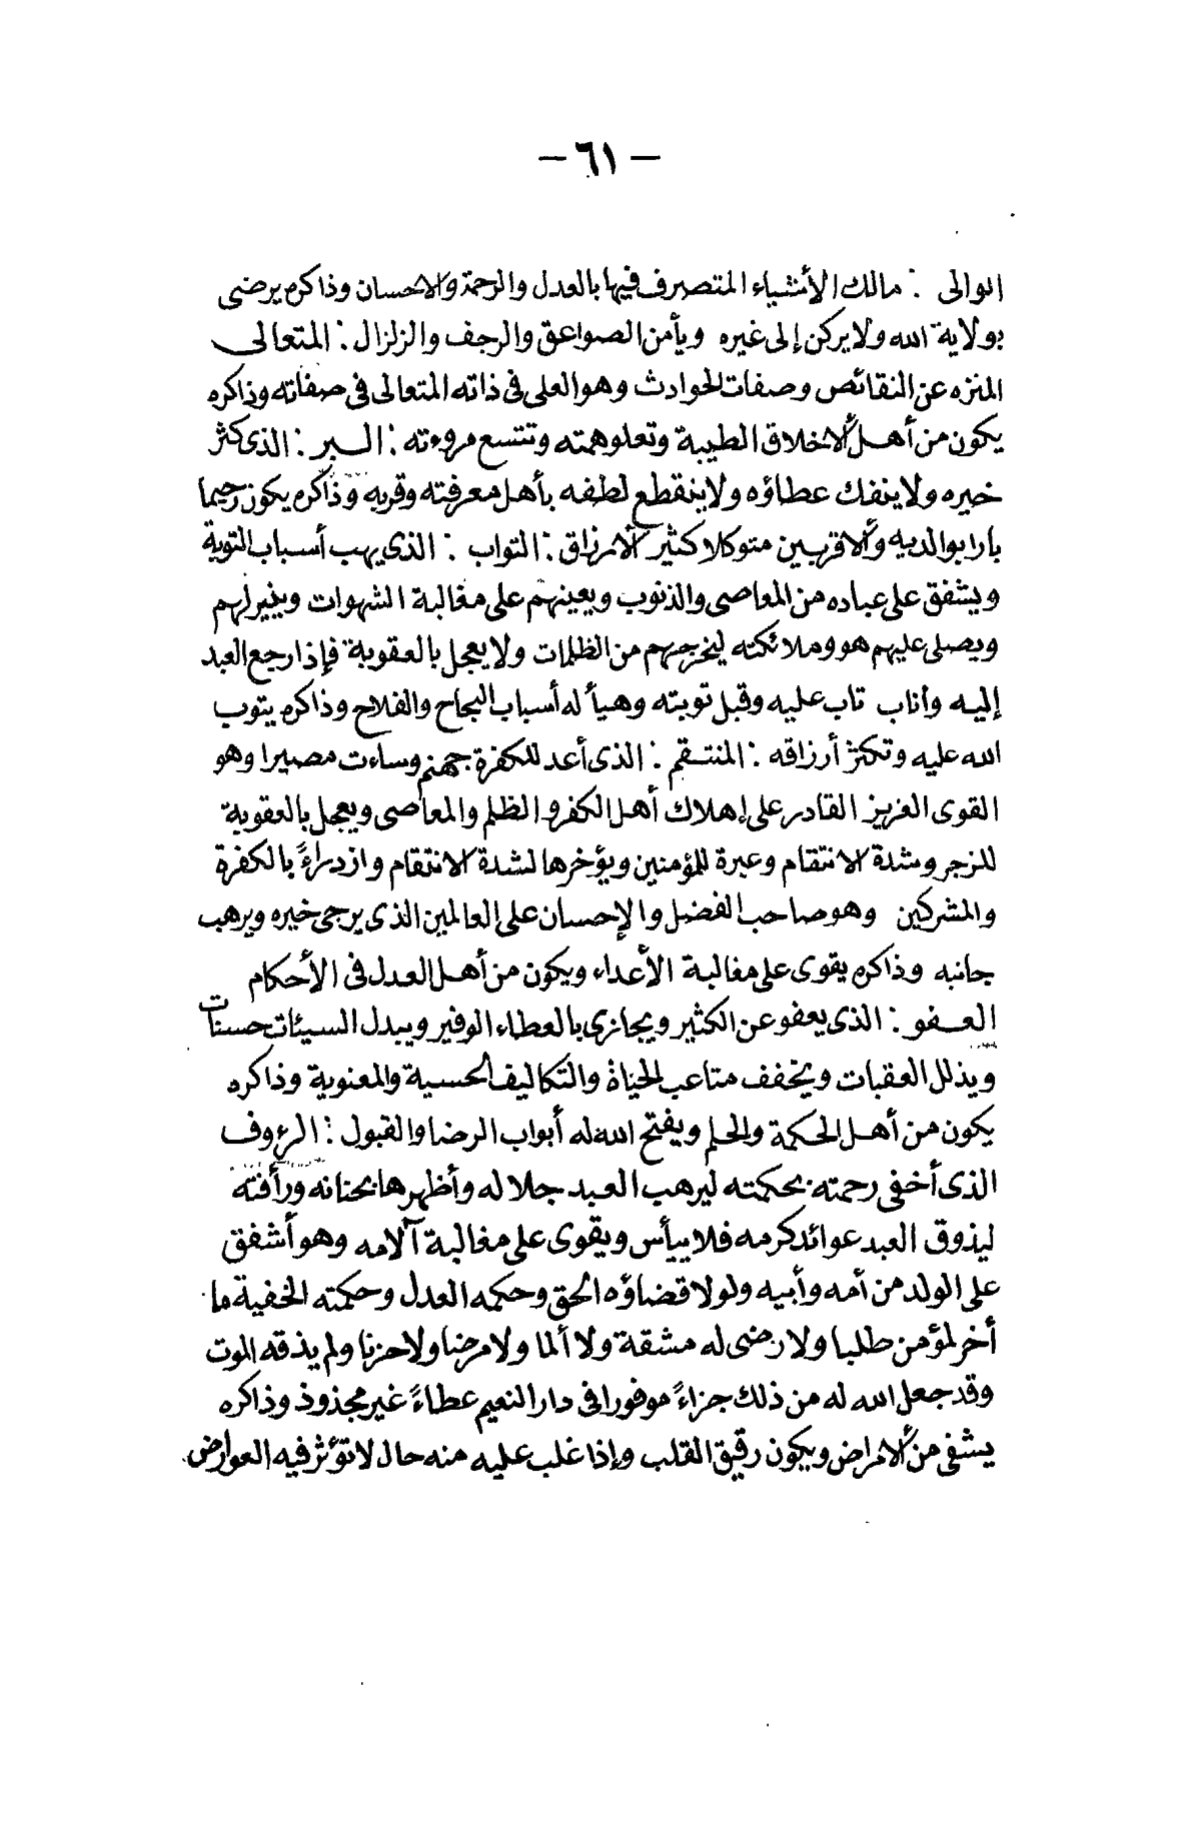 — ٦١ —
الوالى : مالك الأشياء المتصرف فيها بالعدل والرحمة والاحسان وذاكره يرضى
بولاية الله ولا يركن إلى غيره ويأمن الصواعق والرجف والزلزال : المتعالى
المنزه عن النقائص وصفات الحوادث وهو العلى فى ذاته المتعالى فى صفاته وذاكره
يكون من أهل الأخلاق الطيبة وتعلو همته وتتسع مروءته : البر : الذى كثر
خيره ولا ينفك عطاؤه ولا ينقطع لطفه بأهل معرفته وقربه وذاكره يكون رحيما
بارا بوالديه والأقربين متوكلا كثير الأرزاق : التواب : الذى يهب أسباب التوبة
ويشفق على عباده من المعاصى والذنوب ويعينهم على مغالبة الشهوات وينير لهم
ويصلى عليهم هو وملائكته ليخرجهم من الظلمات ولا يعجل بالعقوبة فإذا رجع العبد
إليه وأناب تاب عليه وقبل توبته وهيأ له أسباب النجاح والفلاح وذاكره يتوب
الله عليه وتكثر أرزاقه : المنتقم : الذى أعد للكفرة جهنم وساءت مصيرا وهو
القوى العزيز القادر على إهلاك أهل الكفر والظلم والمعاصى ويعجل بالعقوبة
للزجر وشدة الانتقام وعبرة للمؤمنين ويؤخرها لشدة الانتقام وازدراءً بالكفرة
والمشركين وهو صاحب الفضل والإحسان على العالمين الذى يرجى خيره ويرهب
جانبه وذاكره يقوى على مغالبة الأعداء ويكون من أهل العدل فى الأحكام
العفو : الذى يعفو عن الكثير ويجازى بالعطاء الوفير ويبدل السيئات حسنات
ويذلل العقبات ويخفف متاعب الحياة والتكاليف الحسية والمعنوية وذاكره
يكون من أهل الحكمة والحلم ويفتح الله له أبواب الرضا والقبول : الرءوف
الذى أخفى رحمته بحكمته ليرهب العبد جلاله وأظهرها بحنانه ورأفته
ليذوق العبد عوائد كرمه فلا ييأس ويقوى على مغالبة آلامه وهو أشفق
على الولد من أمه وأبيه ولولا قضاؤه الحق وحكمه العدل وحكمته الخفية ما
أخر لمؤمن طلبا ولا رضى له مشقة ولا ألما ولا مرضا ولا حزنا ولم يذقه الموت
وقد جعل الله له من ذلك جزاءً موفورا فى دار النعيم عطاءً غير مجذوذ وذاكره
يشفى من الأمراض ويكون رقيق القلب وإذا غلب عليه منه حال لا تؤثر فيه العوارض